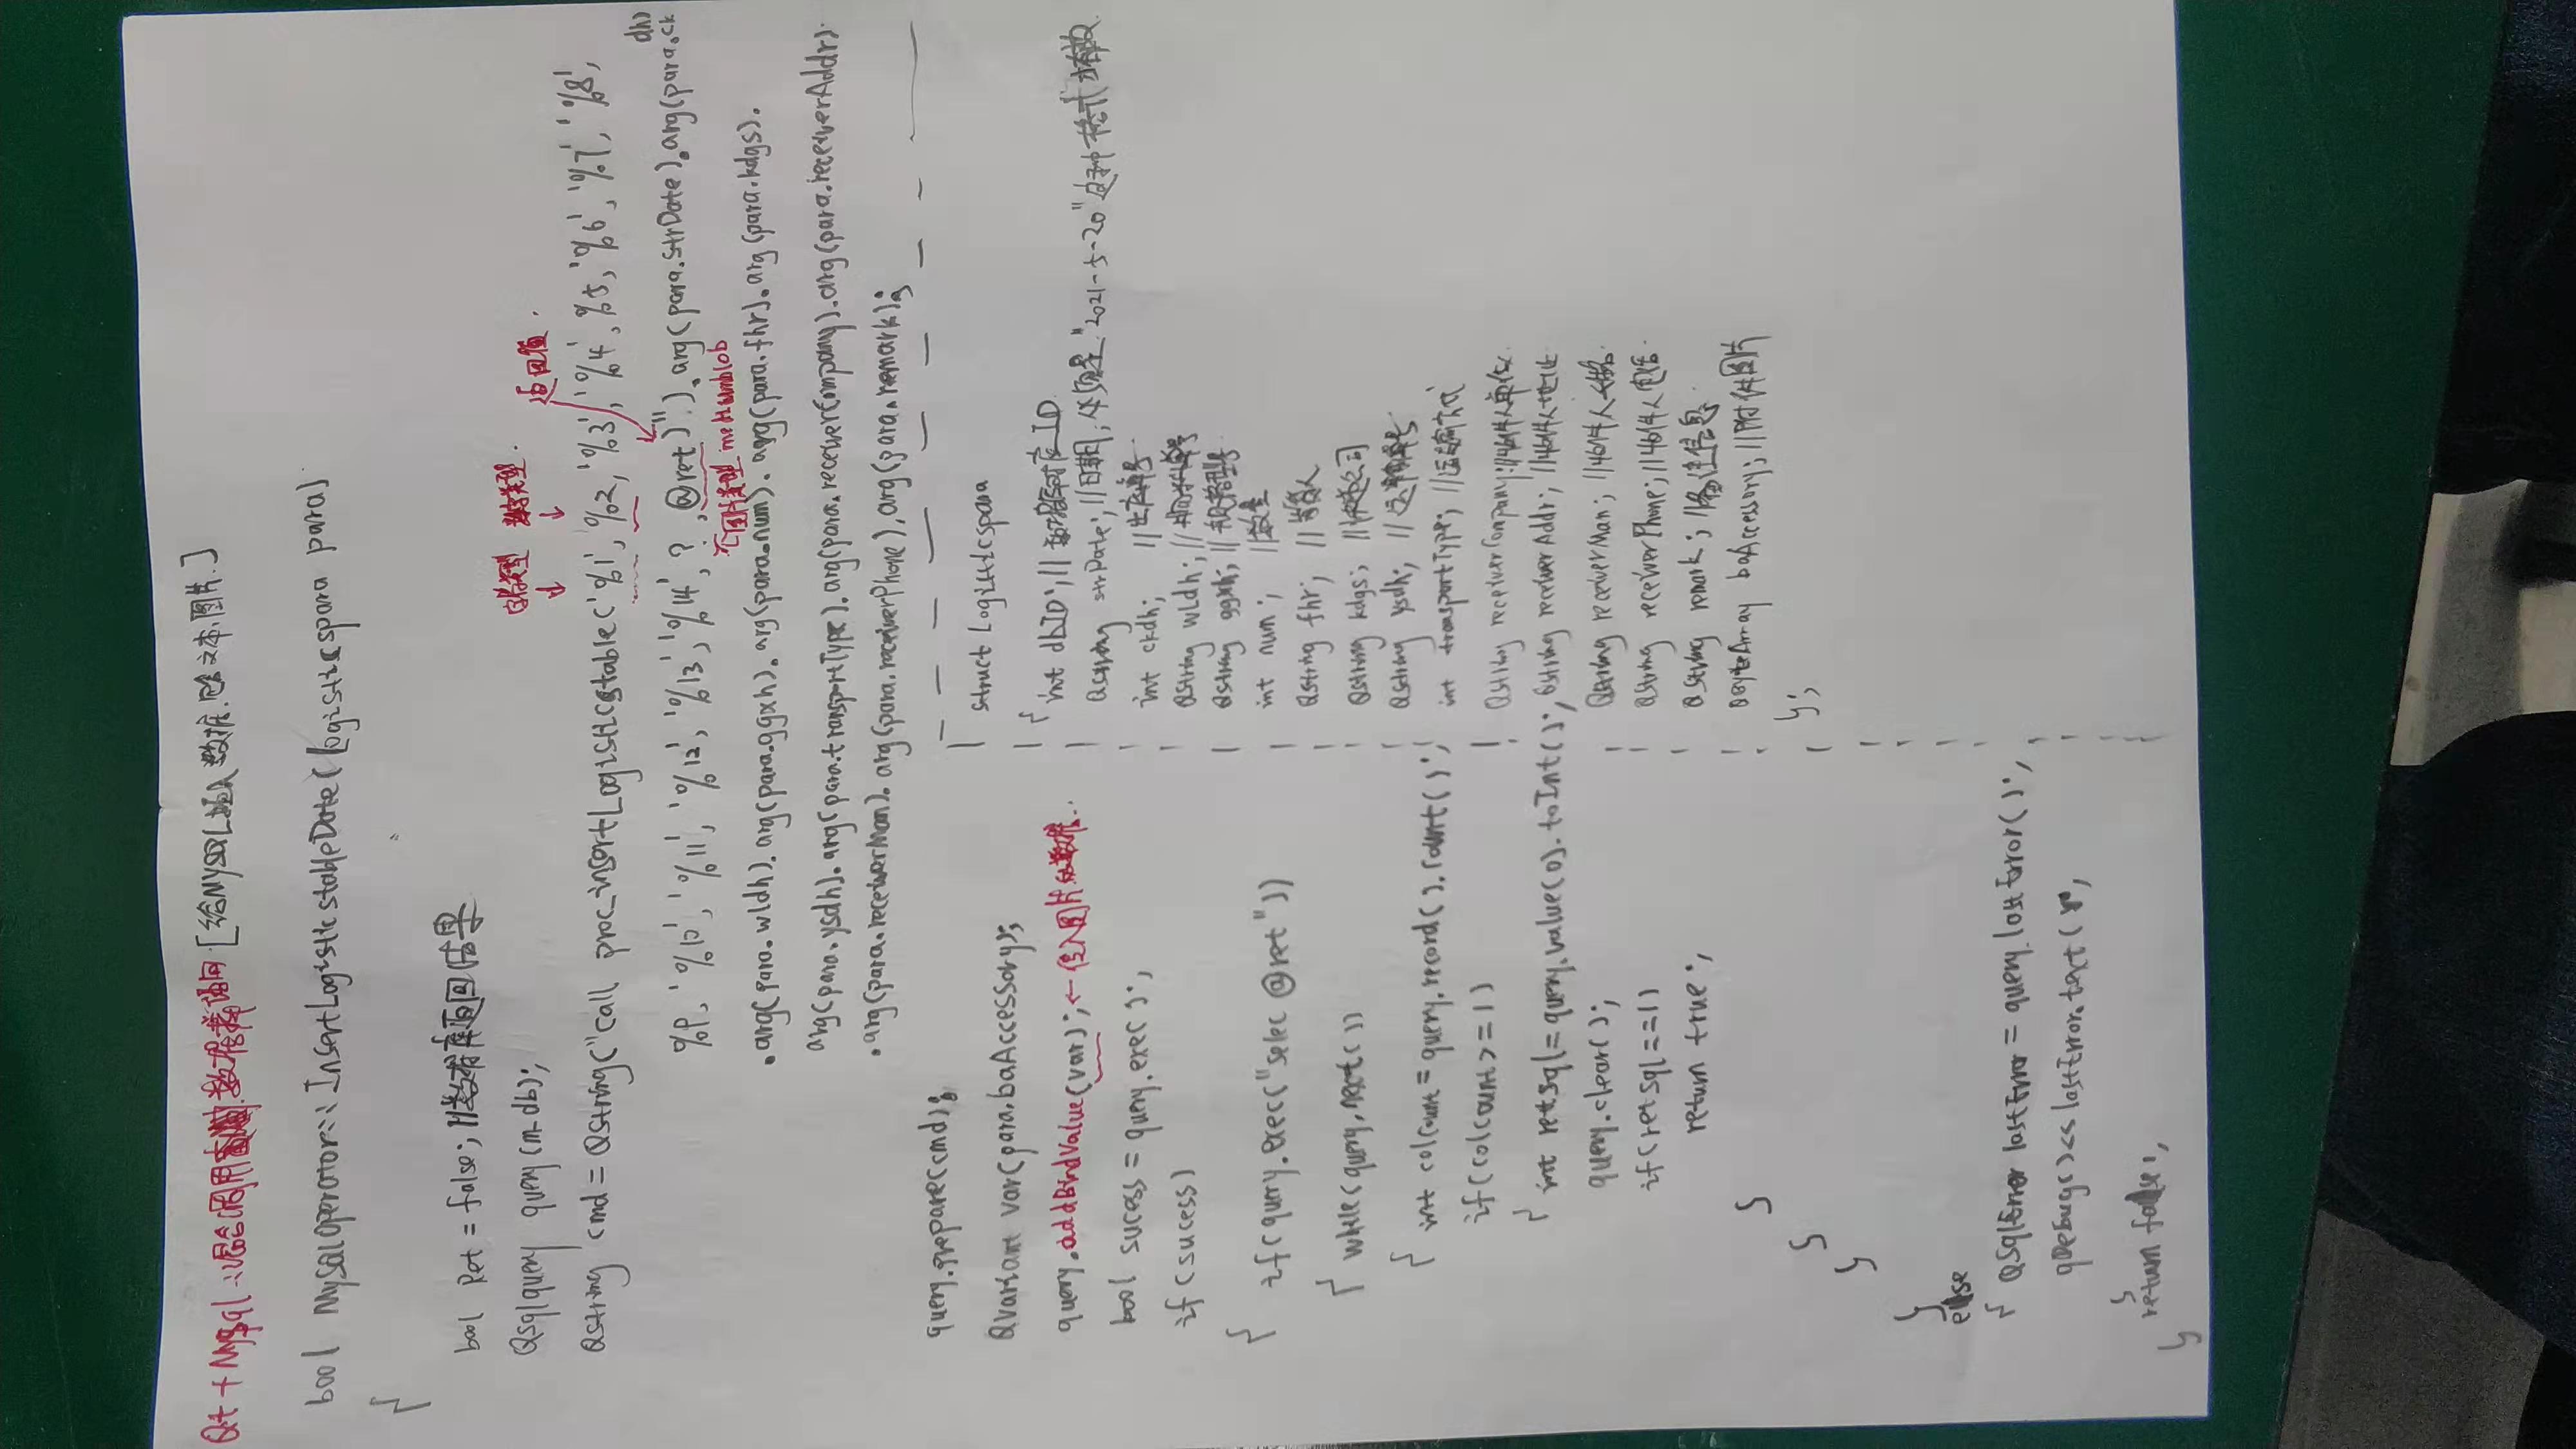 Qt + Mysql :混合调用数据库访问 [给MySQL插入数据.包含文本,图片.]
bool MysqlOperator::InsertLogisticstableDate(Logisticspara para)
{
bool Ret = false; //数据库返回结果
Qsqlquery query(m_db);
字符类型 数字类型.
返回值.
Qstring cmd = Qstring("call proc_insertLogisticstable('%1', %2, '%3', '%4', %5, '%6', '%7', '%8',
%9, '%10', '%11', '%12', '%13', '%14', ?, @ret)").arg(para.strDate).arg(para.ckdh)
图片类型 mediumblob
.arg(para.wldh).arg(para.ggxh).arg(para.num).arg(para.fhr).arg(para.kdgs).
arg(para.ysdh).arg(para.transportType).arg(para.receiverCompany).arg(para.receiverAddr).
.arg(para.receiverMan).arg(para.receiverPhone).arg(para.remark);
query.prepare(cmd);
Qvariant var(para.baAccessory);
query.addBindValue(var); ← 传入图片的数据..
bool sucess = query.exec();
if(sucess)
{
if(query.exec("selec @ret"))
{ while(query.next())
{ int colcount = query.record().count();
if(colcount>=1)
{ int retsql = query.value(0).toInt();
query.clear();
if(retsql==1)
return true;
}
}
}
}
else
{ QSqlError lastError = query.lastError();
qDebug()<< lastError.text();
}
return false;
}
struct Logisticspara
{
int dbID; // 数据库对应ID
Qstring strDate; //日期,必须是"2021-5-20"这种格式才有效
int ckdh; //出库单号
Qstring wldh; //物料单号
Qstring ggxh; //规格型号
int num; //数量
Qstring fhr; //发货人
Qstring kdgs; //快递公司
Qstring ysdh; //运输单号
int transportType; //运输方式
Qstring receiverCompany; //收件人单位
Qstring receiverAddr; //收件人地址
Qstring receiverMan; //收件人姓名
Qstring receiverPhone; //收件人电话
Qstring remark; //备注信息
QByteArray baAccessory; //附件图片
};